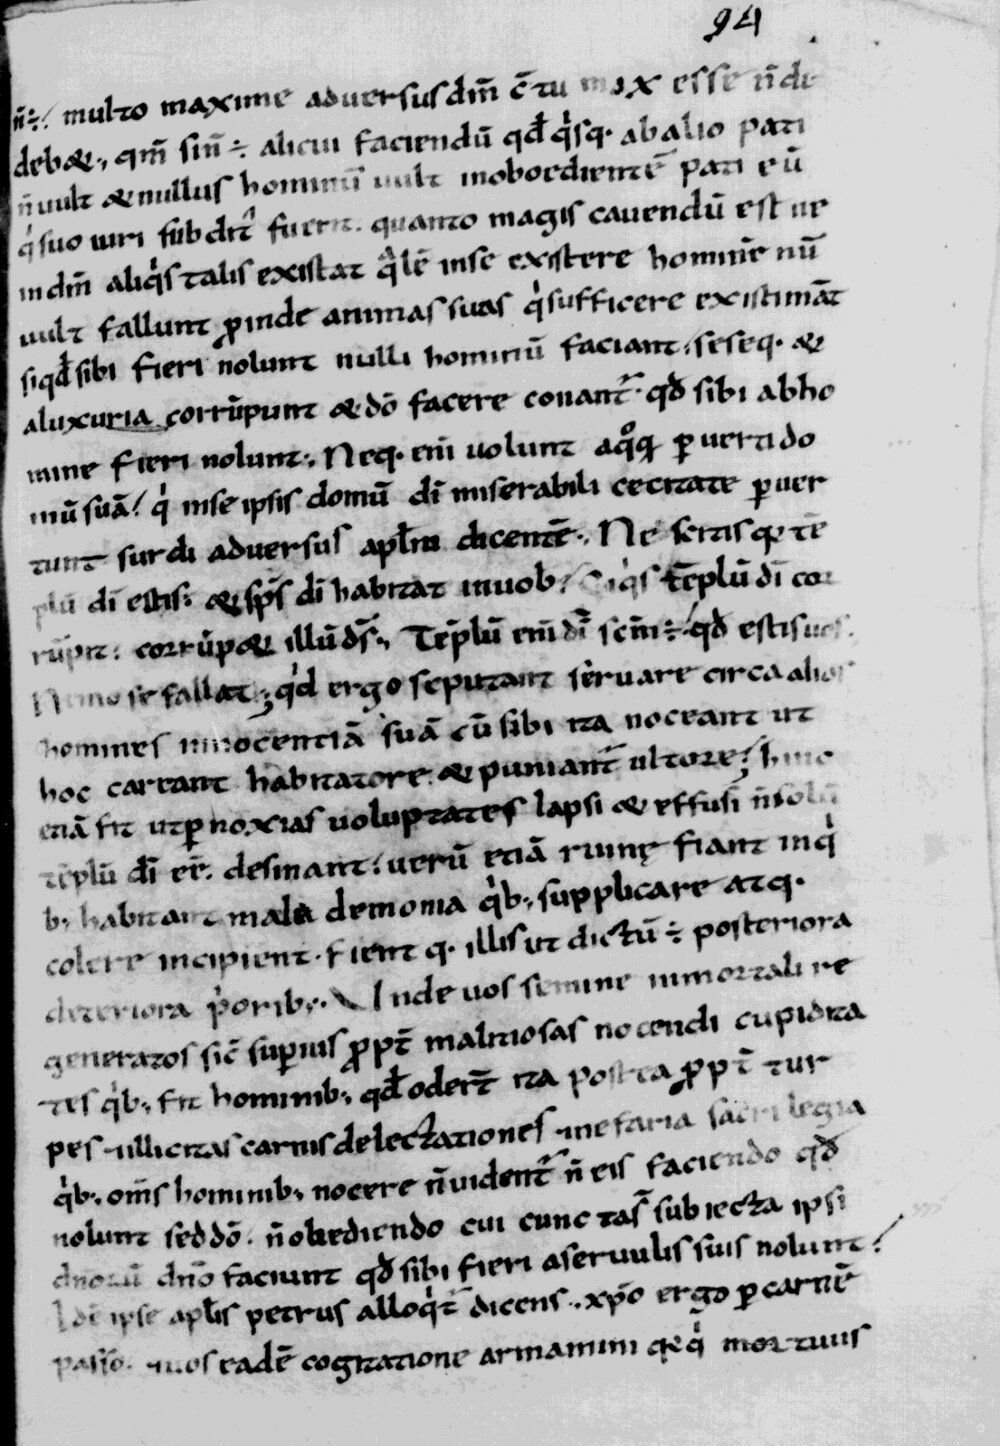 94
n̄÷; multo maxime adversus dm̄ c̄tumax esse n̄ de
deb&., qm̄ sin̄ ÷ alicui faciendū qd̄ qisq· ab alio pati
n̄ uult & nullus hominū uult inoboedientē pati eū
qi suo iuri subdit' fuerit. quanto magis cauendū est ne
in dm̄ aliqis talis existat qilē in se existere hominē nū
uult fallunt ꝓinde animas suas qi sufficere existimāt
si qd̄ sibi fieri nolunt nulli hominū faciant. seseq· &
a luxuria corrūpunt & dō facere conant' qd̄ sibi ab ho
mine fieri nolunt., Neq· eni uolunt a qoq ꝑuerti do
mū suā! qi in se ipsis domū di miserabili cecitate ꝑuer
tunt surdi aduersus apl̄m dicentē., Nescitis q tē
plū di estis: & sps̄ di habitat in uob? Siqis tēplū di cor
rūpit: corrūp& illū ds̄., Tēplū eni di scm̄÷. qd̄ estis uos.
Nemo se fallat; qid ergo se putant seruare circa alios
homines innocentiā suā cū sibi ita noceant ut
hoc careant habitatore. & puniant' ultore? hinc
etiā fit ut ꝑ noxias uoluptates lapsi & effusi n̄ solū
tēplū di eē. desinant! uerū etiā ruinę fiant in qi
b; habitant mala demonia qib; supplicare atq·
colere incipient. fientq· illis ut dictū ÷ posteriora
deteriora piorib;. Inde uos semine inmortali re
generatos sic̄ suꝑius ꝓpt̄ malitiosas nocendi cupidita
tes qib; fit hominib; qd̄ odert̄ ita postea ꝓpt̄ tur
pes illicitas carnis delectationes nefaria sacrilegia
qib; om̄s hominib; nocere n̄ uident' n̄ eis faciendo qd̄
nolunt sed dō. n̄ obediendo cui cunctas' subiecta ipsi
dnorū dnō faciunt qd̄ sibi fieri a seruulis suis nolunt!
Idē ipse apl̄is petrus alloqit' dicens., xp̄o ergo ꝑ carnē
passo. uos eadē cogitatione armamini q qi mortuus